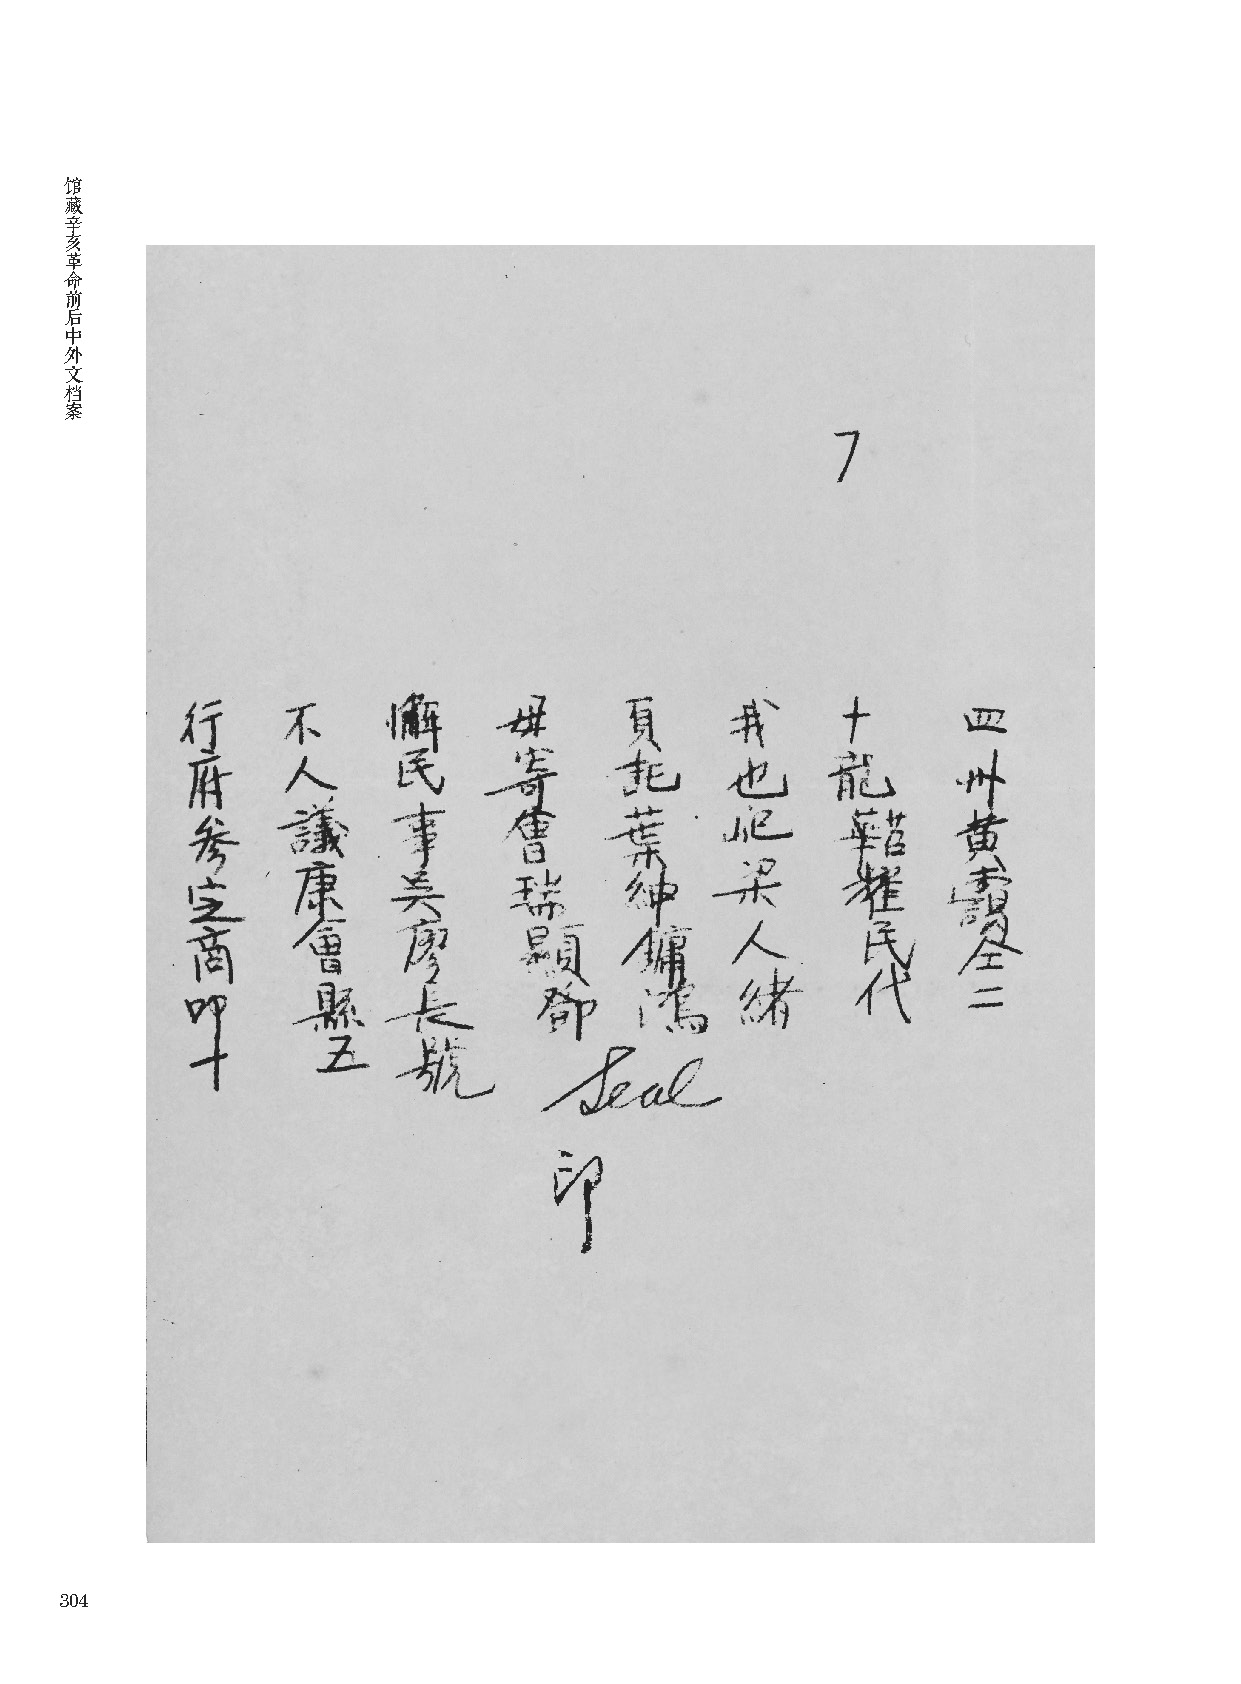 馆藏辛亥革命前后中外文档案
7
四州黄霭全二
十龍韜耀民代
我也爬梁人緒
頁起葉紳鏞鴻
毋寄會瑞顯鄧
懈民事吴廖長號
不人議康會縣五
行府参定商叩十
Seal
印
304